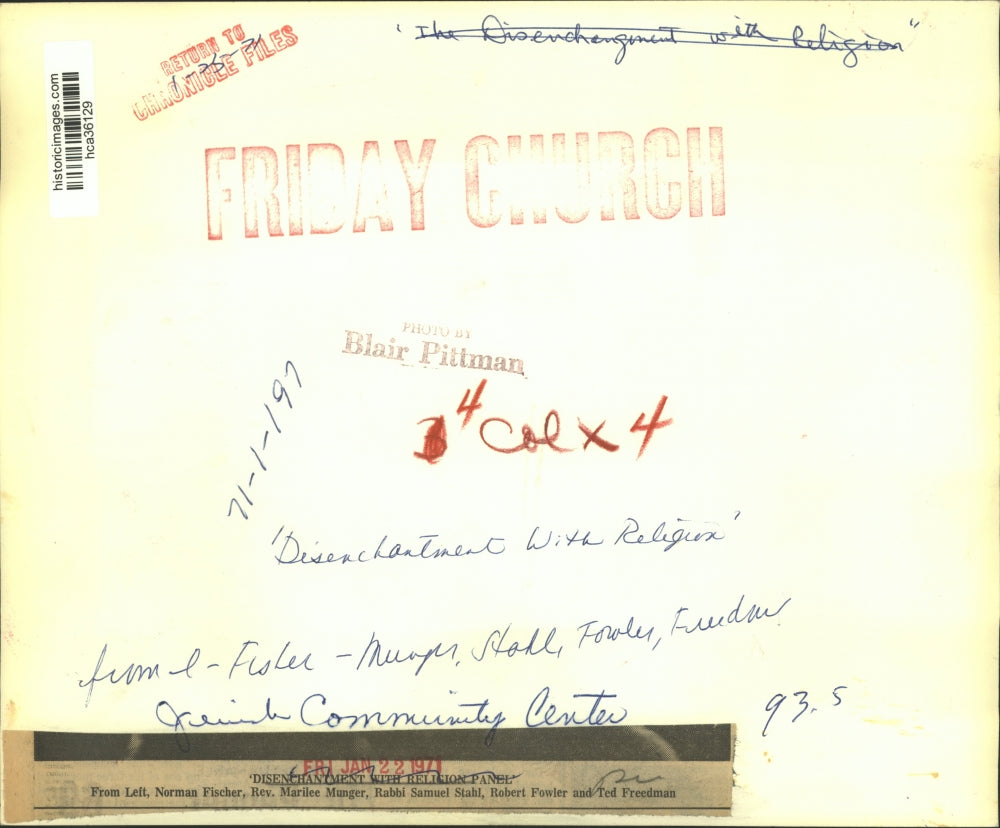 "The Disenchangment with Religion"
RETURN TO
1-25-71
CHRONICLE FILES
historicimages.com
hca36129
FRIDAY CHURCH
PHOTO BY
Blair Pittman
4 Col x 4
71-1-197
'Disenchantment With Religion'
from l - Fisher - Munger, Stahl, Fowler, Freedm
Jewish Community Center
93.5
FRI JAN 22 1971
'DISENCHANTMENT WITH RELIGION PANEL'
From Left, Norman Fischer, Rev. Marilee Munger, Rabbi Samuel Stahl, Robert Fowler and Ted Freedman